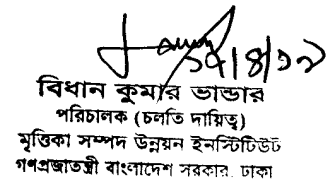 বিধান কুমার ভান্ডার
পরিচালক (চলতি দায়িত্ব)
মৃত্তিকা সম্পদ উন্নয়ন ইনস্টিটিউট
গণপ্রজাতন্ত্রী বাংলাদেশ সরকার, ঢাকা